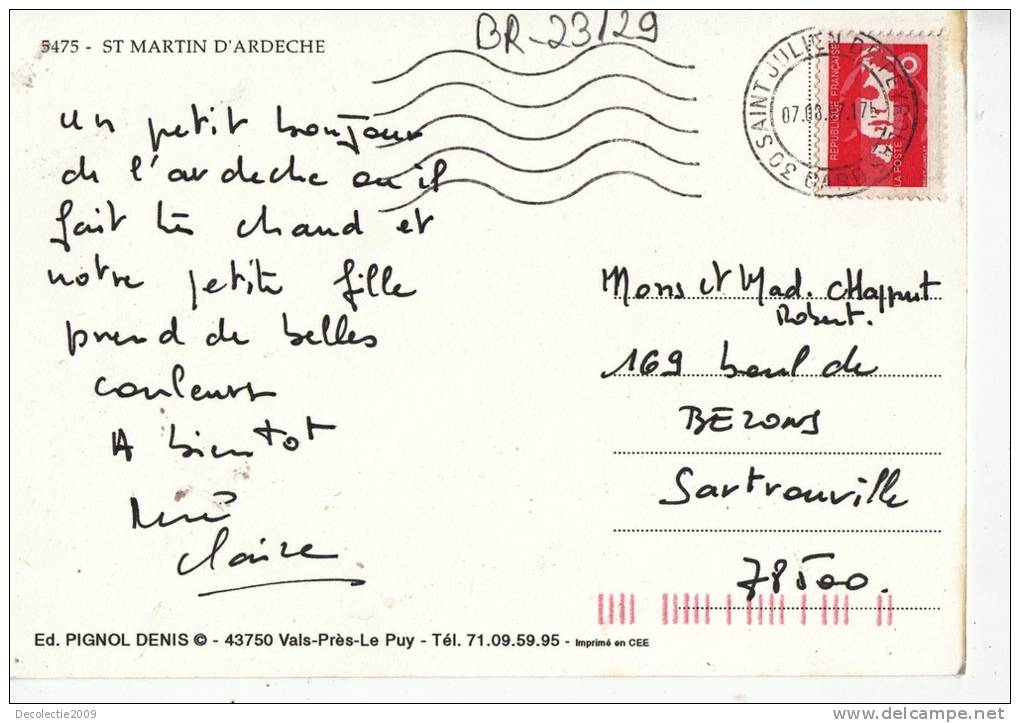 BR-23/29
5475 - ST MARTIN D'ARDECHE
un petit bonjour
de l'ardeche ou il
fait très chaud et
notre petite fille
prend de belles
couleurs
A bientot
Claire
30 SAINT JULIEN DE PEYROLAS
GARD
REPUBLIQUE FRANÇAISE
LA POSTE
Mons et Mad. Chapput
Robert.
169 boul de
BEZONS
Sartrouville
78500.
Ed. PIGNOL DENIS © - 43750 Vals-Près-Le Puy - Tél. 71.09.59.95 - Imprimé en CEE
Decolectie2009